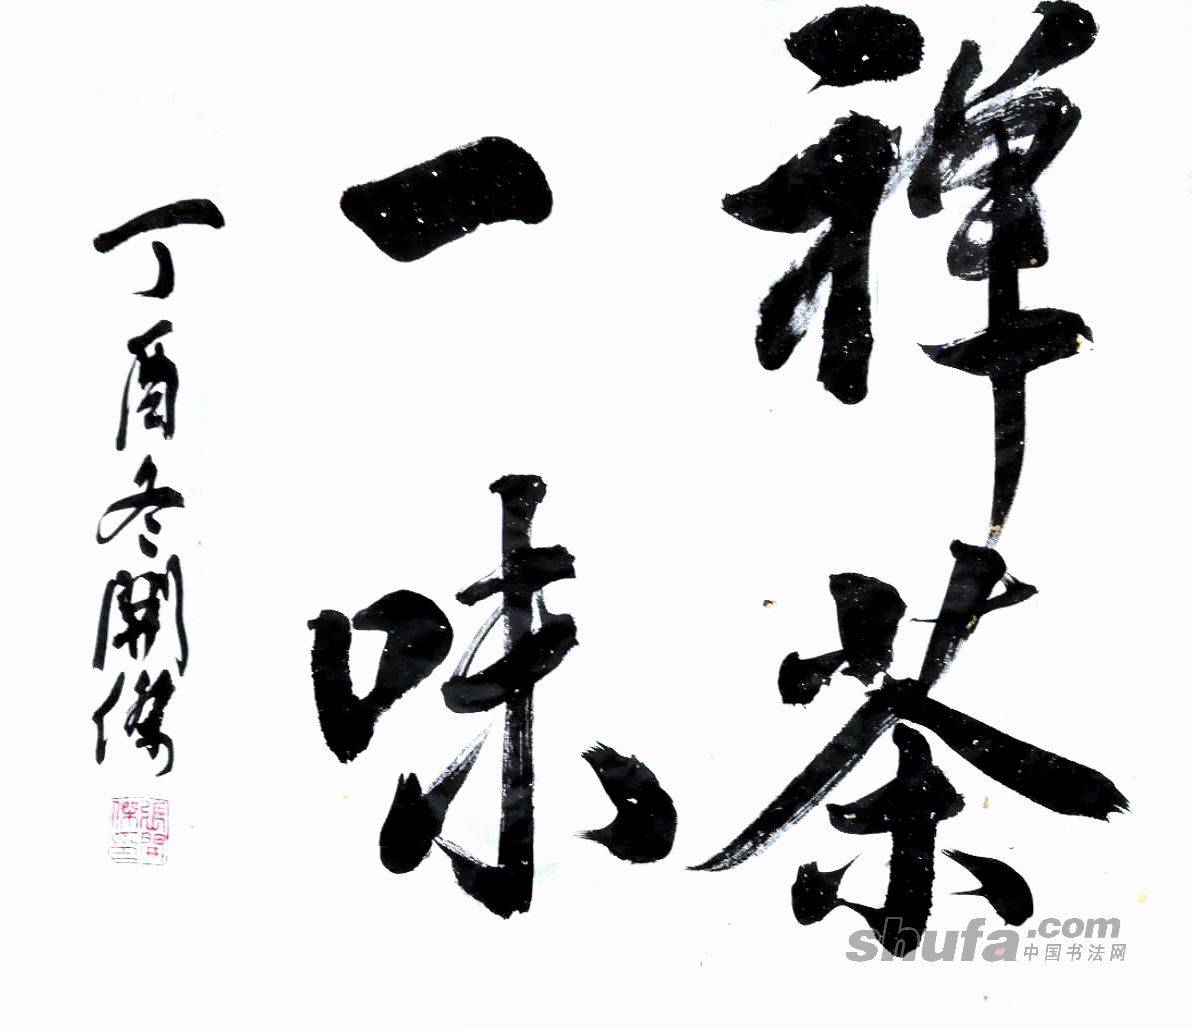 禅茶
一味
丁酉冬開傑
張開傑印
shufa.com
中国书法网